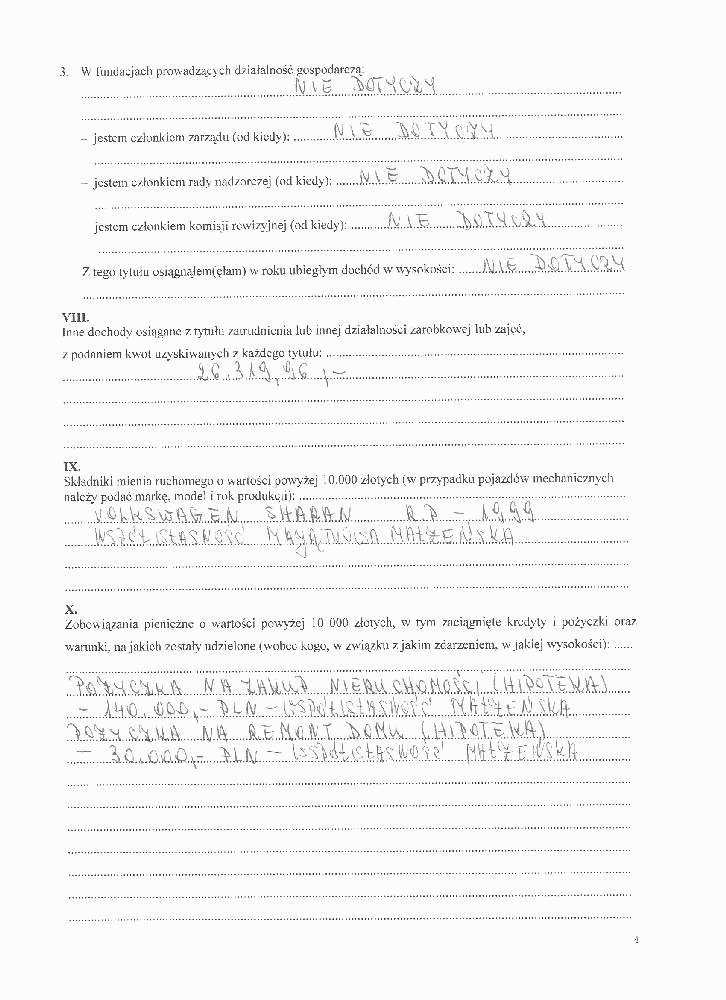 3. W fundacjach prowadzących działalność gospodarczą:
NIE DOTYCZY
– jestem członkiem zarządu (od kiedy): NIE DOTYCZY
– jestem członkiem rady nadzorczej (od kiedy): NIE DOTYCZY
jestem członkiem komisji rewizyjnej (od kiedy): NIE DOTYCZY
Z tego tytułu osiągnąłem(ęłam) w roku ubiegłym dochód w wysokości: NIE DOTYCZY
VIII.
Inne dochody osiągane z tytułu zatrudnienia lub innej działalności zarobkowej lub zajęć,
z podaniem kwot uzyskiwanych z każdego tytułu:
26.319,96,-
IX.
Składniki mienia ruchomego o wartości powyżej 10.000 złotych (w przypadku pojazdów mechanicznych
należy podać markę, model i rok produkcji):
VOLKSWAGEN SHARAN R.P – 1999
WSPÓŁWŁASNOŚĆ MAJĄTKOWA MAŁŻEŃSKA
X.
Zobowiązania pieniężne o wartości powyżej 10 000 złotych, w tym zaciągnięte kredyty i pożyczki oraz
warunki, na jakich zostały udzielone (wobec kogo, w związku z jakim zdarzeniem, w jakiej wysokości):
POŻYCZKA NA ZAKUP NIERUCHOMOŚCI (HIPOTEKA)
– 140.000,- PLN – WSPÓŁWŁASNOŚĆ MAŁŻEŃSKA
POŻYCZKA NA REMONT DOMU (HIPOTEKA)
– 30.000,- PLN – WSPÓŁWŁASNOŚĆ MAŁŻEŃSKA
4